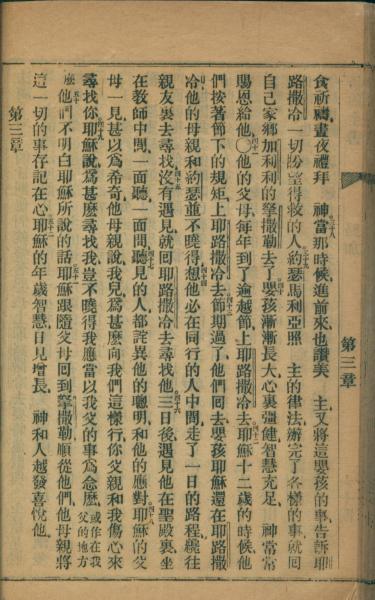 第三章
食祈禱晝夜禮拜　神當那時候進前來也讚美　主又將這嬰孩的事告訴耶
路撒冷一切盼望得救的人約瑟馬利亞照　主的律法辦完了各樣的事就回
自己家鄉加利利的拏撒勒去了嬰孩漸漸長大心裏强健智慧充足　神常常
賜恩給他〇他的父母每年到了逾越節上耶路撒冷去耶穌十二歲的時候他
們按著節下的規矩上耶路撒冷去節期過了他們回去嬰孩耶穌還在耶路撒
冷他的母親和約瑟並不曉得想他必在同行的人中間走了一日的路程纔往
親友裏去尋找沒有遇見就回耶路撒冷去尋找他三日後遇見他在聖殿裏坐
在教師中間一面聽一面問聽見的人都詫異他的聰明和他的應對耶穌的父
母一見甚以爲希奇他母親說我兒爲甚麼向我們這樣行你父親和我傷心來
尋找你耶穌說爲甚麼尋找我豈不曉得我應當以我父的事爲念麼或作在我父的地方
麼他們不明白耶穌所說的話耶穌跟隨父母回到拏撒勒順從他們他母親將
這一切的事存記在心耶穌的年歲智慧日見增長　神和人越發喜悅他
第三章